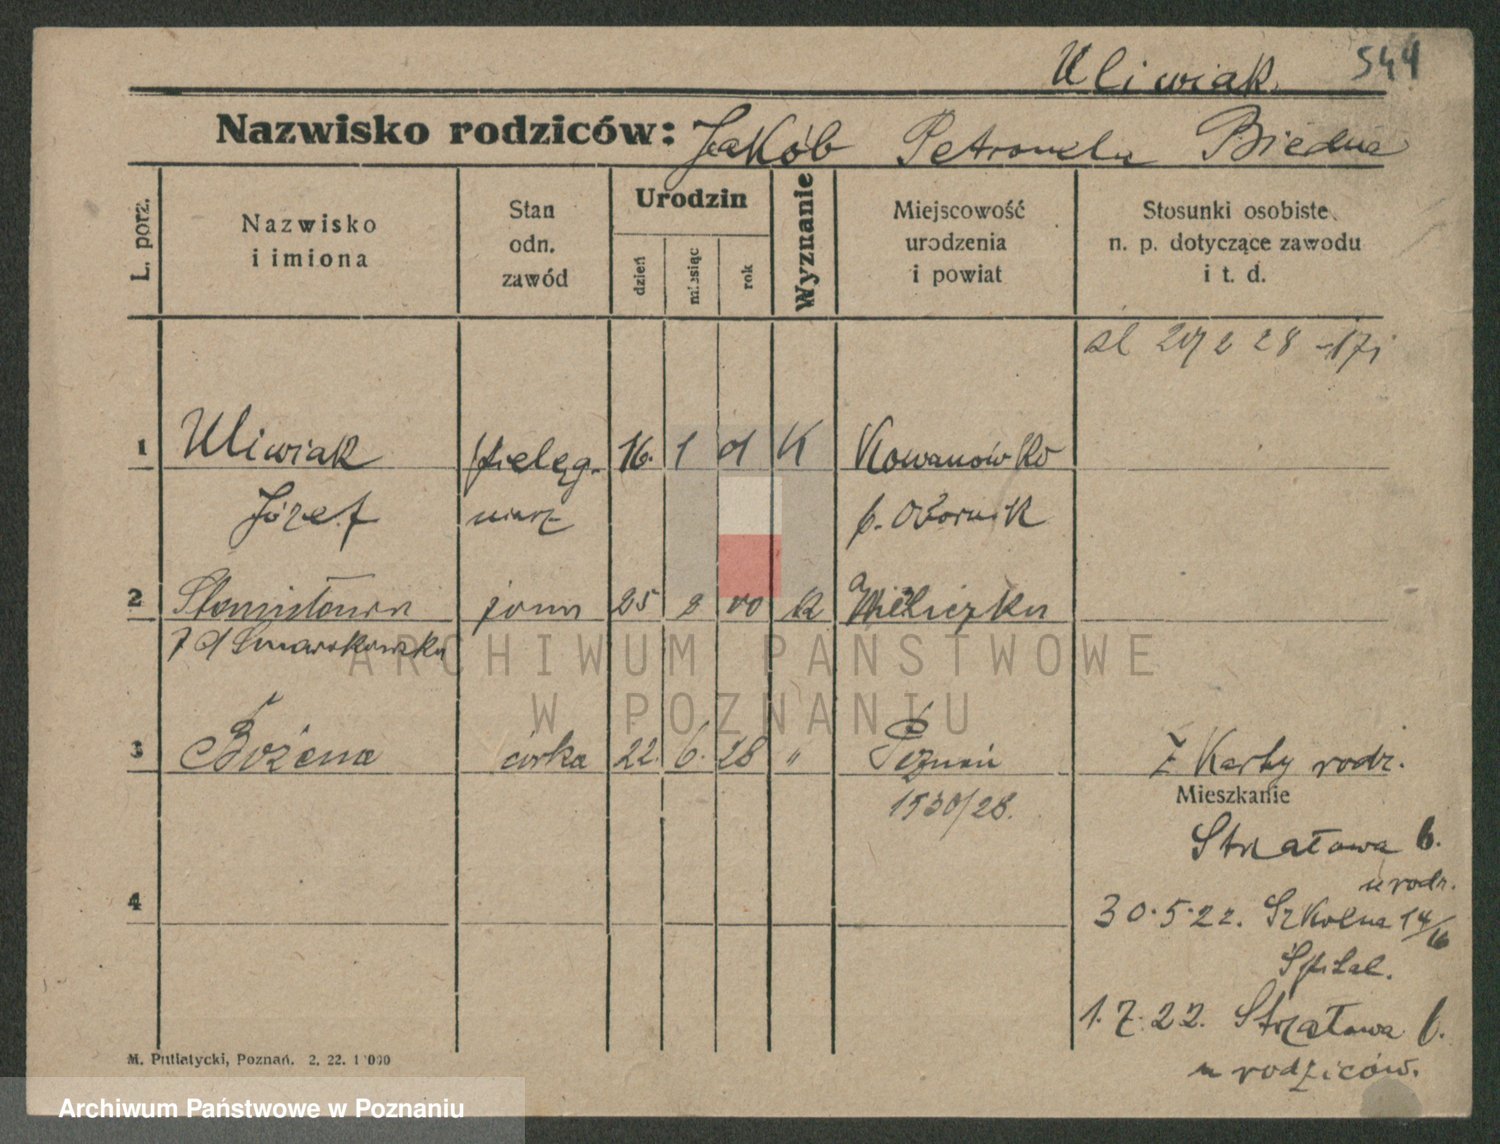 Uliwiak 544
Nazwisko rodziców: Jakób Petronela Biedna
L. porz.
Nazwisko
i imiona
Stan
odn.
zawód
Urodzin
dzień
miesiąc
rok
Wyznanie
Miejscowość
urodzenia
i powiat
Stosunki osobiste,
n. p. dotyczące zawodu
i t. d.
sl 28
1 Uliwiak pielęg- 16. 1 01 K Kowanówko
Józef niarz p. Obornik
2 Stanisława żona 25 2 00 K Wieliczka
z d
3 Bożena córka 22. 6. 28 " Poznań
1530/28.
z Karty rodz.
Mieszkanie
Strzałowa 6.
u rodz.
4
30.5.22. Szkolna 14/16
Szpital.
1.7.22. Strzałowa 6.
u rodziców.
M. Putiatycki, Poznań. 2. 22. 1000
ARCHIWUM PAŃSTWOWE
W POZNANIU
Archiwum Państwowe w Poznaniu